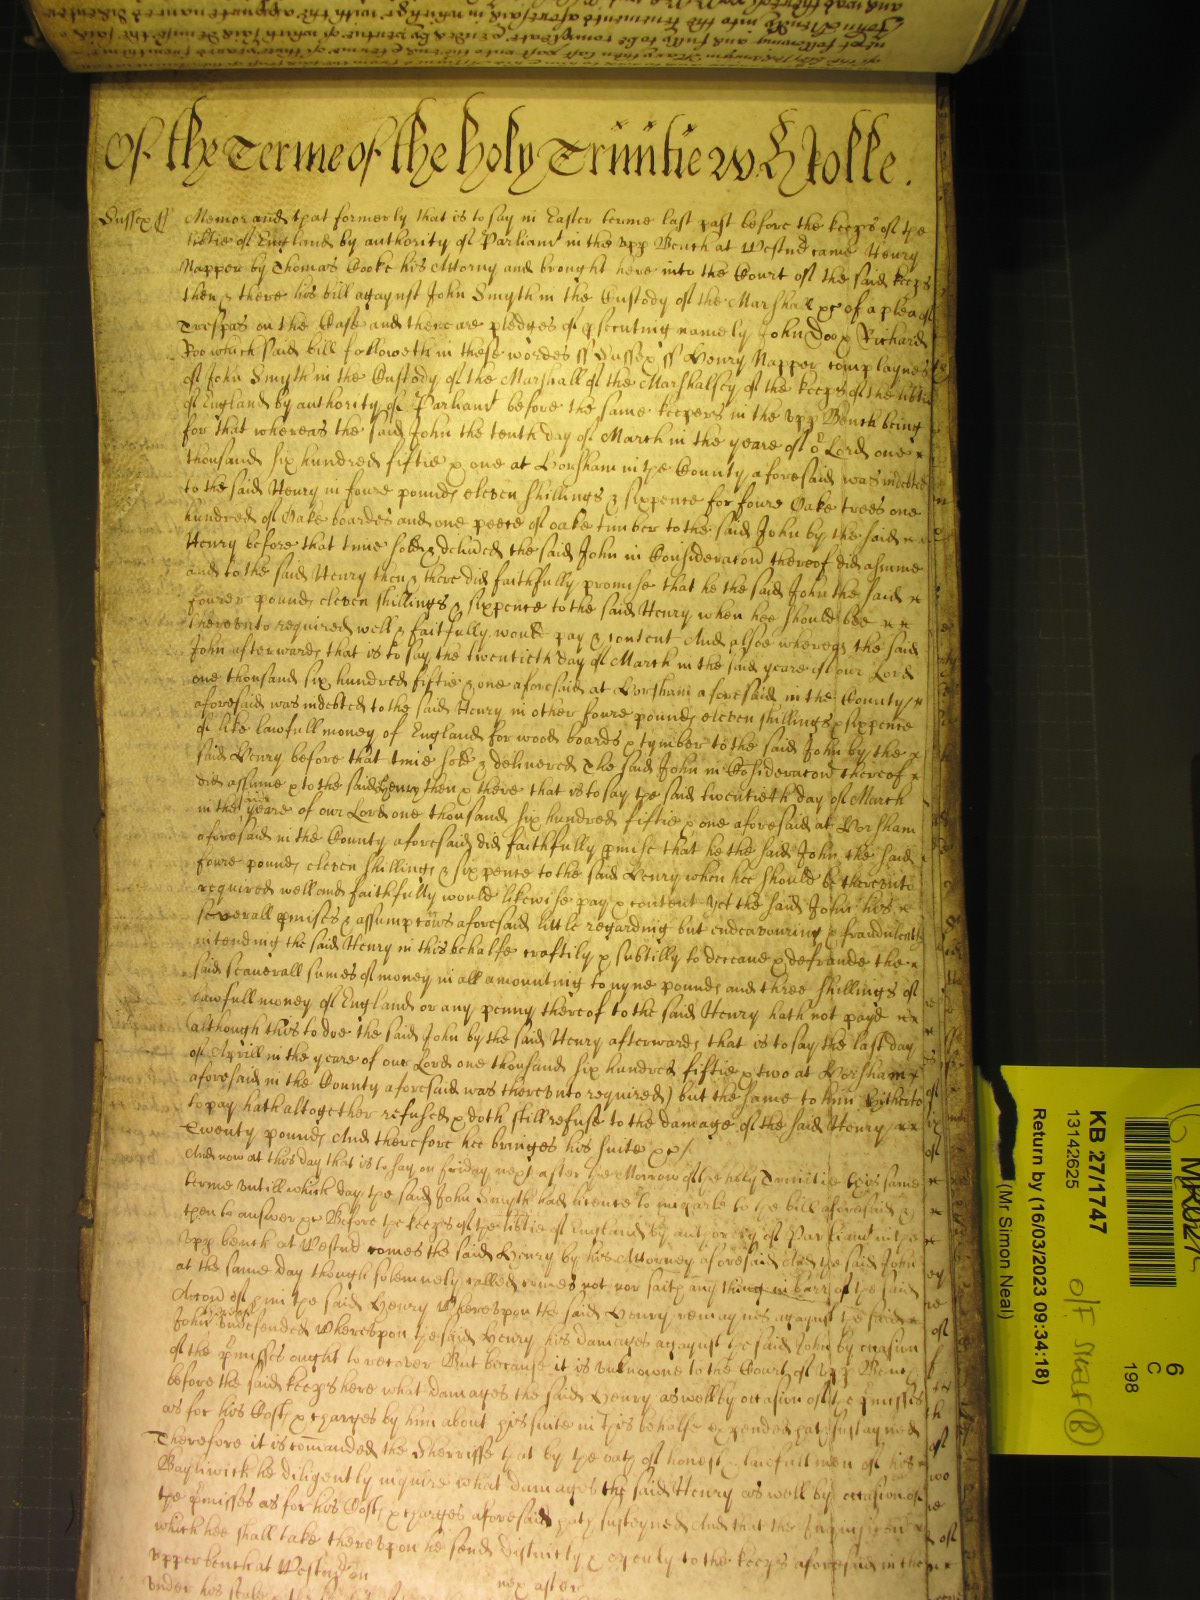 Of the Terme of the holy Trinitie w H Rolle.
Sussex ss Memorand that formerly that is to say in Easter terme last past before the keeps of the
libtie of England by authority of Parliamt in the vpp Bench at Westm came Henry
Napper by Thomas Cooke his Attorny and brought here into the Court of the said keeps
then & there his bill against John Smyth in the Custody of the Marshall &c of a plea of
Trespas on the Case and there are pledges of psecuting namely John Doo & Richard
Roo which said bill followeth in these wordes ss Sussex ss Henry Napper complaynes
of John Smyth in the Custody of the Marshall of the Marshalsey of the keeps of the libtie
of England by authority of Parliamt before the same keepers in the vpp Bench being
for that whereas the said John the tenth day of March in the yeare of or Lord one
thousand six hundred fiftie & one at Horsham in the County aforesaid was indebted
to the said Henry in foure pounds eleven shillings & sixpence for foure Oake trees one
hundred of Oake boardes and one peece of oake timber to the said John by the said
Henry before that time sold & delivered the said John in Consideracon thereof did assume
and to the said Henry then & there did faithfully promise that he the said John the said
fower pounds eleven shillings & sixpence to the said Henry when hee should bee
therevnto required well & faithfully would pay & content And alsoe whereas the said
John afterwards that is to say the twentieth day of March in the said yeare of our Lord
one thousand six hundred fiftie & one aforesaid at Horsham aforesaid in the County
aforesaid was indebted to the said Henry in other foure pounds eleven shillings & sixpence
of like lawfull money of England for wood boards & tymber to the said John by the
said Henry before that time sold & delivered The said John in Cosideracon thereof
did assume & to the said Henry then & there that is to say the said twentieth day of March
in the said yeare of our Lord one thousand six hundred fiftie & one aforesaid at Horsham
aforesaid in the County aforesaid did faithfully pmise that he the said John the said
foure pounds eleven shillings & sixpence to the said Henry when hee should be therevnto
required well and faithfully would likewise pay & content Yet the said John his
severall pmises & assumpcons aforesaid little regarding but endeavouring & fraudulently
intending the said Henry in this behalfe craftily & subtilly to deceave & defraude the
said seaverall sumes of money in all amounting to nyne pounds and three shillings of
lawfull money of England or any penny thereof to the said Henry hath not payd
(although this to doe the said John by the said Henry afterwards that is to say the last day
of Aprill in the yeare of our Lord one thousand six hundred fiftie & two at Horsham
aforesaid in the County aforesaid was therevnto required) but the same to him hitherto
to pay hath altogether refused & doth still refuse to the damage of the said Henry
Twenty pounds And therefore hee bringes his suite &c
And now at this day that is to say on Friday next after the Morrow of the holy Trinitie this same
terme vntill which day the said John Smyth had licence to imparle to the bill aforesaid &
then to answer &c Before the keeps of the libtie of England by authority of Parliamt in the
vpp bench at Westm comes the said Henry by his Attorney aforesaid And the said John
at the same day though solemnely called comes not nor saith any thing in barr of the said
Accon of him the said Henry Wherevpon the said Henry remaynes against the said
John vndefended Wherevpon the said Henry his damages against the said John by occasion
of the pmisses ought to recover But because it is vnknowne to the Court of vpp Bench
before the said keeps here what damages the said Henry as well by occasion of the pmisses
as for his Costs & charges by him about his suite in this behalfe expended hath sustayned
Therefore it is comanded the Sherriffe that by the oath of honest & lawfull men of his
Bayliwick he diligently inquire what damages the said Henry as well by occasion of
the pmisses as for his Costs & charges aforesaid hath susteyned And that the Inquisicon
which hee shall take therevpon he send distinctly & openly to the keeps aforesaid in the
vpper bench at Westm on next after
vnder his seale
KB 27/1747
13142625
Return by (16/03/2023 09:34:18)
(Mr Simon Neal)
6
C
198